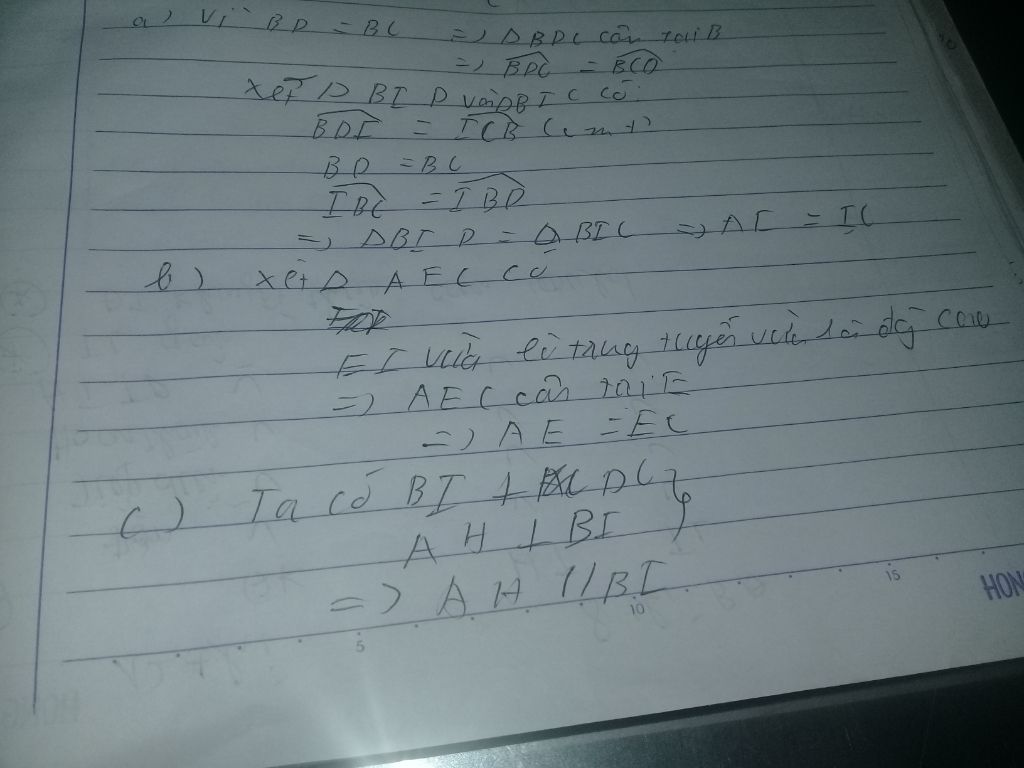 a) Vì BD = BC => Δ BDC cân tại B
=> BDC = BCD
Xét Δ BID và Δ BIC có:
BDI = ICB (cmt)
BD = BC
IBC = IBD
=> Δ BID = Δ BIC => AI = IC
b) xét Δ AEC có
EI vừa là trung tuyến vừa là đg cao
=> AEC cân tại E
=> AE = EC
c) Ta có BI ⊥ DC }
AH ⊥ BI
=> AH // BI
5 10 15
HONG